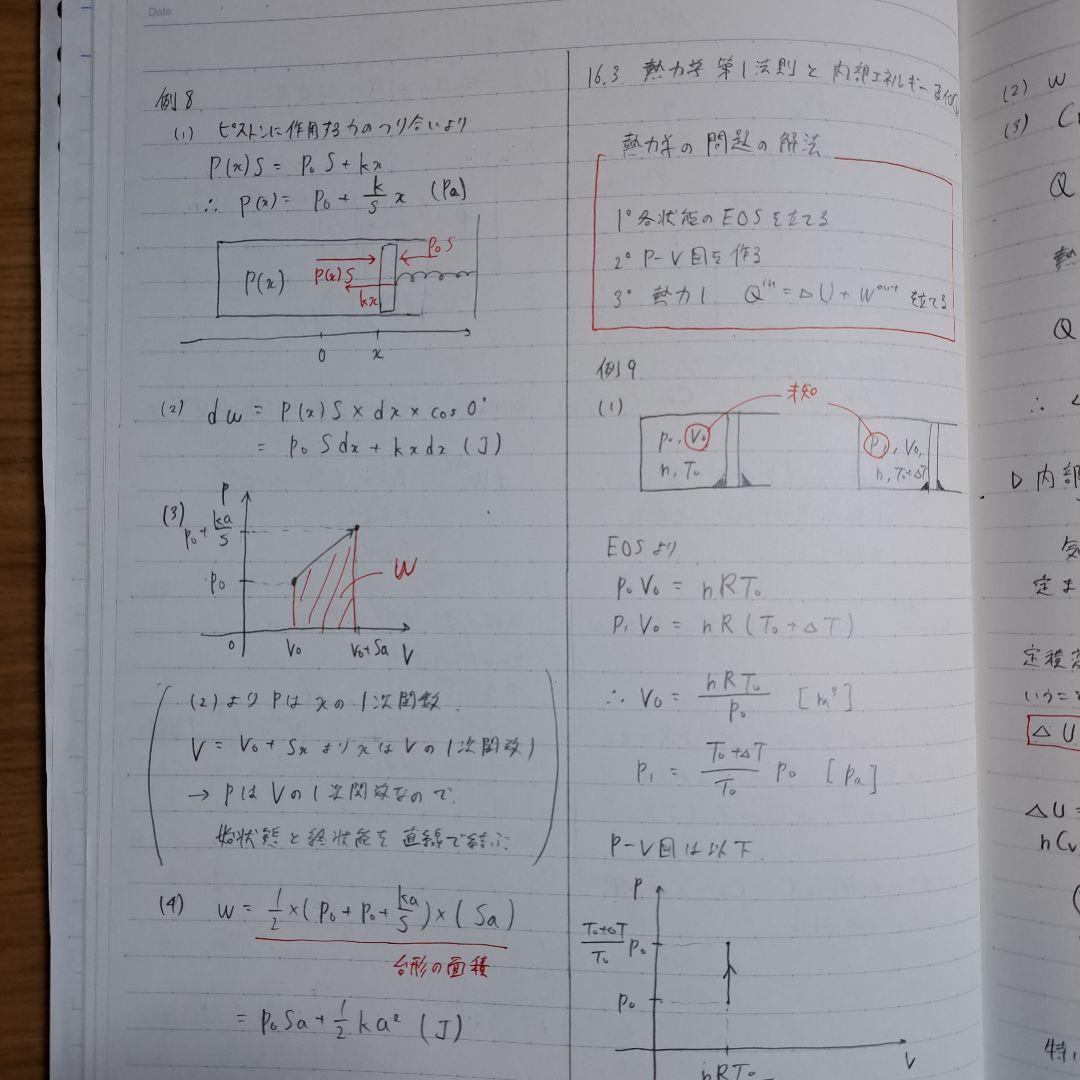 Date
例8.
(1) ピストンに作用する力のつり合いより
P(x)S = P₀S + kx
∴ P(x) = P₀ + k/S x (Pa)
P(x)
P(x)S
P₀S
kx
0 x
(2) dw = P(x)S × dx × cos0°
= P₀Sdx + kxdx (J)
(3)
P
P₀ + ka/S
P₀
W
0 V₀ V₀+Sa V
(2)より Pは xの1次関数.
V = V₀ + Sx より xは Vの1次関数
→ PはVの1次関数なので.
始状態と終状態を直線で結ぶ
(4) W = 1/2 ×(P₀ + P₀ + ka/S) × (Sa)
台形の面積
= P₀Sa + 1/2 ka² (J)
16.3 熱力学第1法則と内部エネルギー
熱力学の問題の解法
1° 各状態のEOSを立てる
2° P-V図を作る
3° 熱力1. Qⁱⁿ = ΔU + Wᵒᵘᵗ を立てる
例9
(1)
未知
P₀, V₀
n, T₀
P₁, V₀,
n, T₀+ΔT
EOSより
P₀V₀ = nRT₀
P₁V₀ = nR(T₀+ΔT)
∴ V₀ = nRT₀/P₀ [m³]
P₁ = T₀+ΔT/T₀ P₀ [Pa]
P-V図は以下.
P
T₀+ΔT/T₀ P₀
P₀
V
nRT₀
(2) W
(3) C
Q
熱
Q
∴
▷内部
気
定ま
定積
いうこと
ΔU
ΔU =
nCv
特に